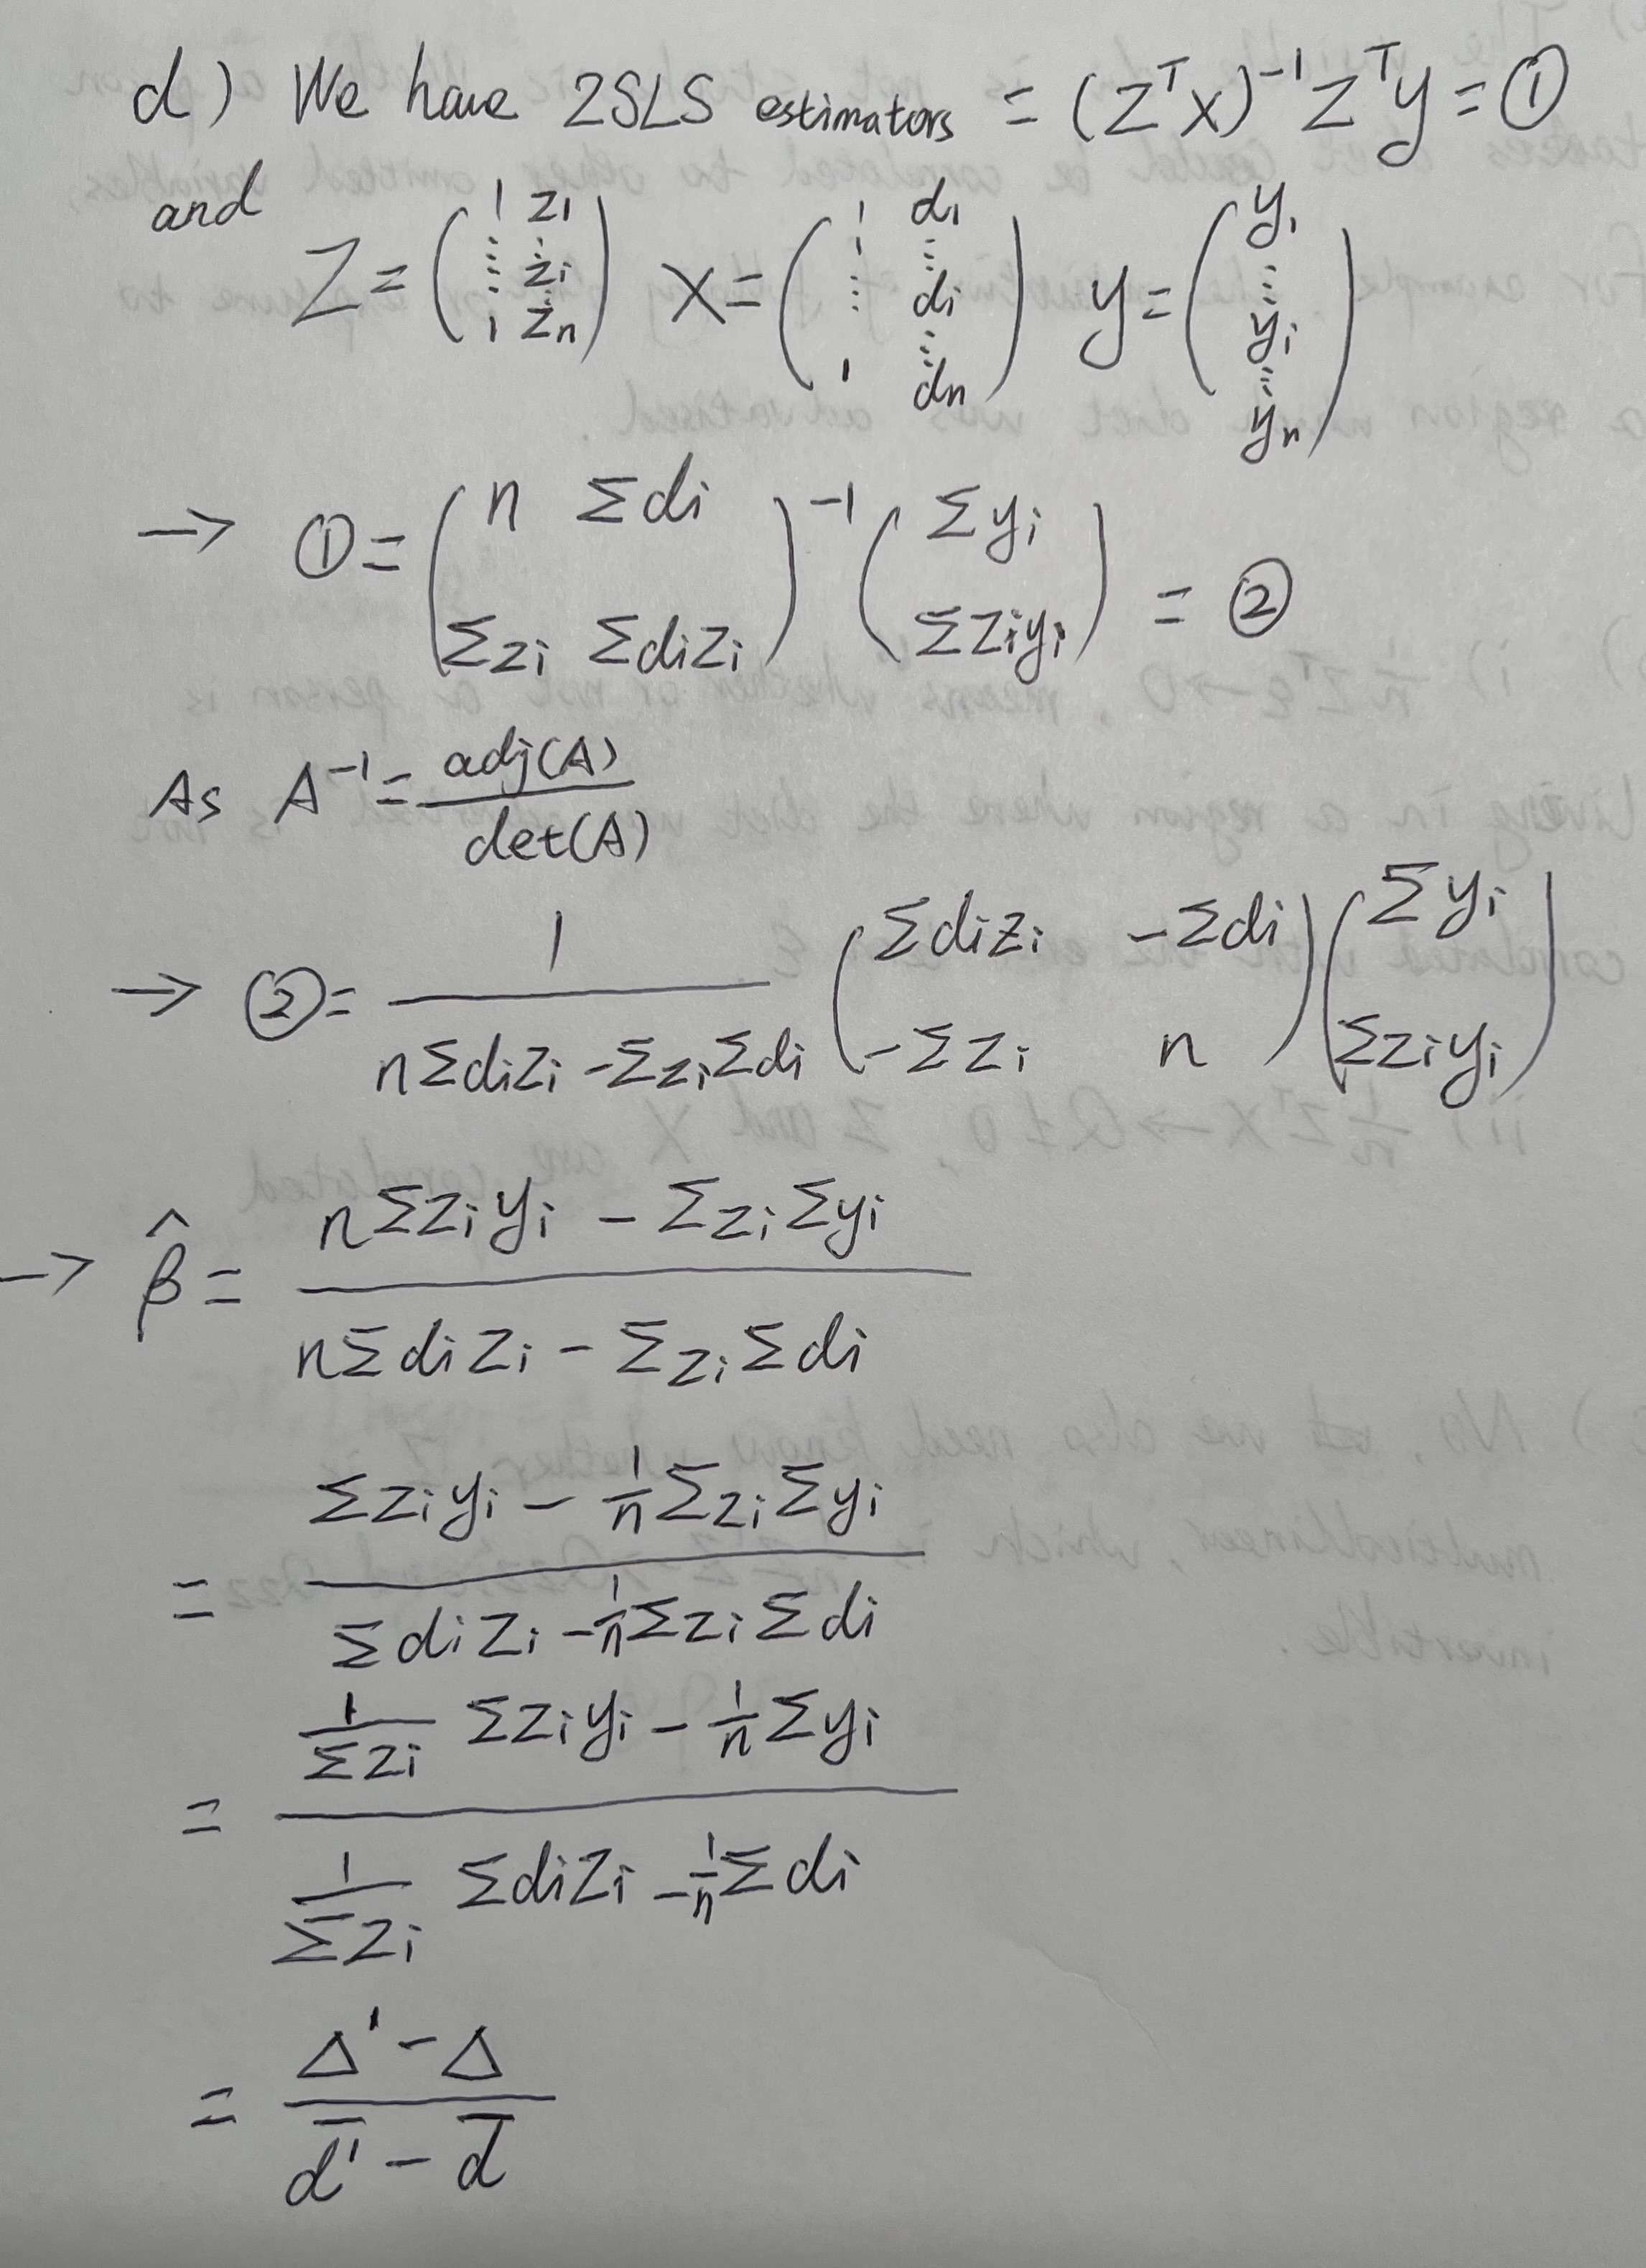 d) We have 2SLS estimators = (Z^T X)^{-1} Z^T y = ①
and Z = ( 1 z1 ⋮ ⋮ zi ⋮ 1 zn ) X = ( 1 d1 ⋮ ⋮ di ⋮ 1 dn ) y = ( y1 ⋮ yi ⋮ yn )
→ ① = ( n Σdi ; Σzi Σdizi )^{-1} ( Σyi ; Σziyi ) = ②
As A^{-1} = adj(A) / det(A)
→ ② = 1 / (nΣdizi - ΣziΣdi) ( Σdizi -Σdi ; -Σzi n ) ( Σyi ; Σziyi )
→ β̂ = (nΣziyi - ΣziΣyi) / (nΣdizi - ΣziΣdi)
= (Σziyi - 1/n ΣziΣyi) / (Σdizi - 1/n ΣziΣdi)
= (1/Σzi Σziyi - 1/n Σyi) / (1/Σzi Σdizi - 1/n Σdi)
= (Δ' - Δ) / (d̄' - d̄)